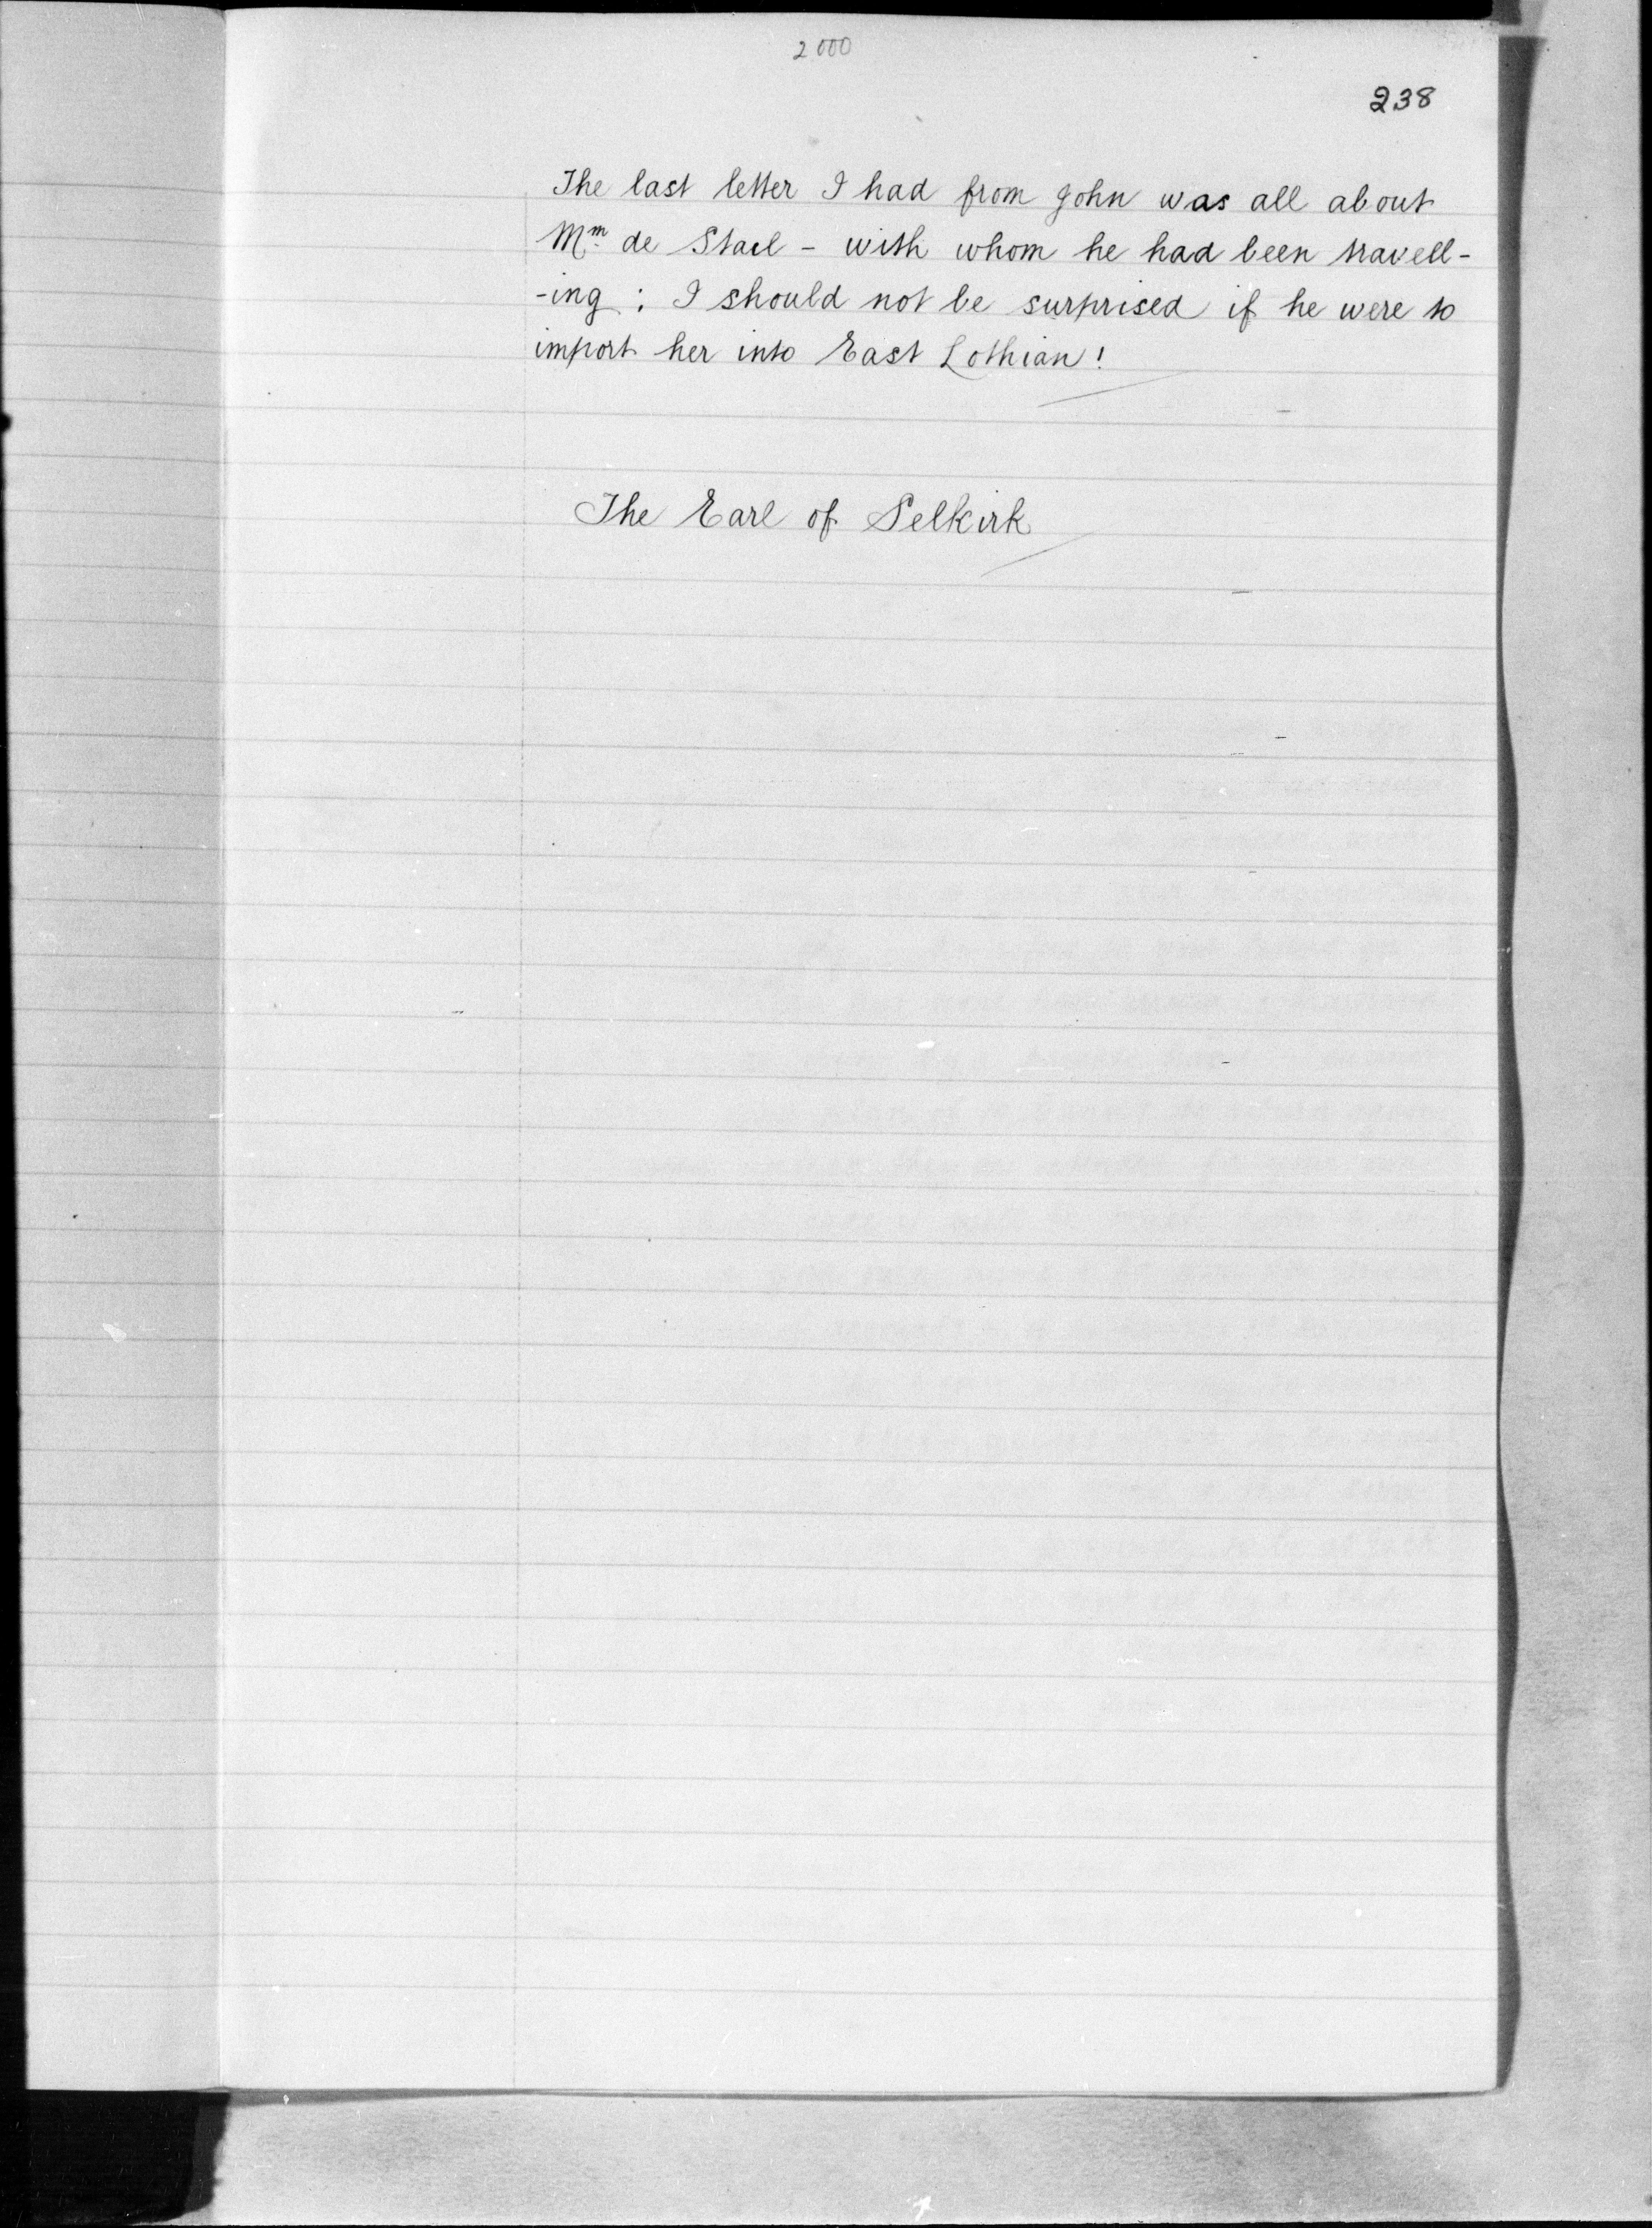 2000
238
The last letter I had from John was all about
Mm. de Stael - with whom he had been travell-
-ing : I should not be surprised if he were to
import her into East Lothian!
The Earl of Selkirk